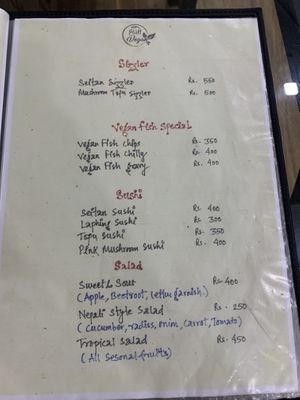 Still
Vegan
Sizzler
Seitan Sizzler Rs. 550
Mushroom Tofu Sizzler Rs. 500
Vegan Fish Special
Vegan Fish Chips Rs. 350
Vegan Fish Chilly Rs. 400
Vegan Fish gravy Rs. 400
Sushi
Seitan Sushi Rs. 400
Laphing Sushi Rs. 300
Tofu Sushi Rs. 350
Pink Mushroom Sushi Rs. 400
Salad
Sweet & Sour Rs. 400
(Apple, Beetroot, lettus garnish.)
Nepali Style Salad Rs. 250
(Cucumber, radiss, onim, Carrot, Tomato)
Tropical Salad Rs. 450
(All Sesonal fruits)